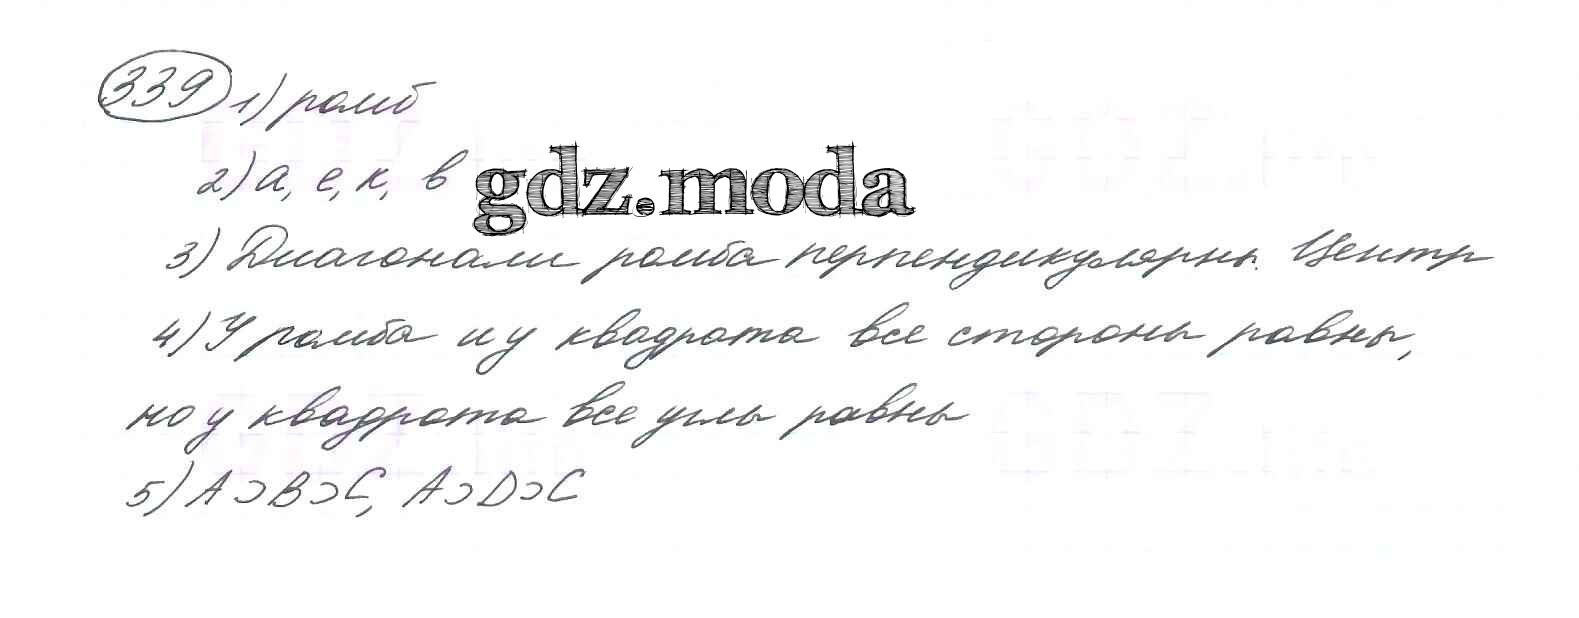 339 1) ромб
2) а, е, к, в
gdz.moda
3) Диагонали ромба перпендикулярны. Центр
4) У ромба и у квадрата все стороны равны,
но у квадрата все углы равны
5) A⊃B⊃C, A⊃D⊃C